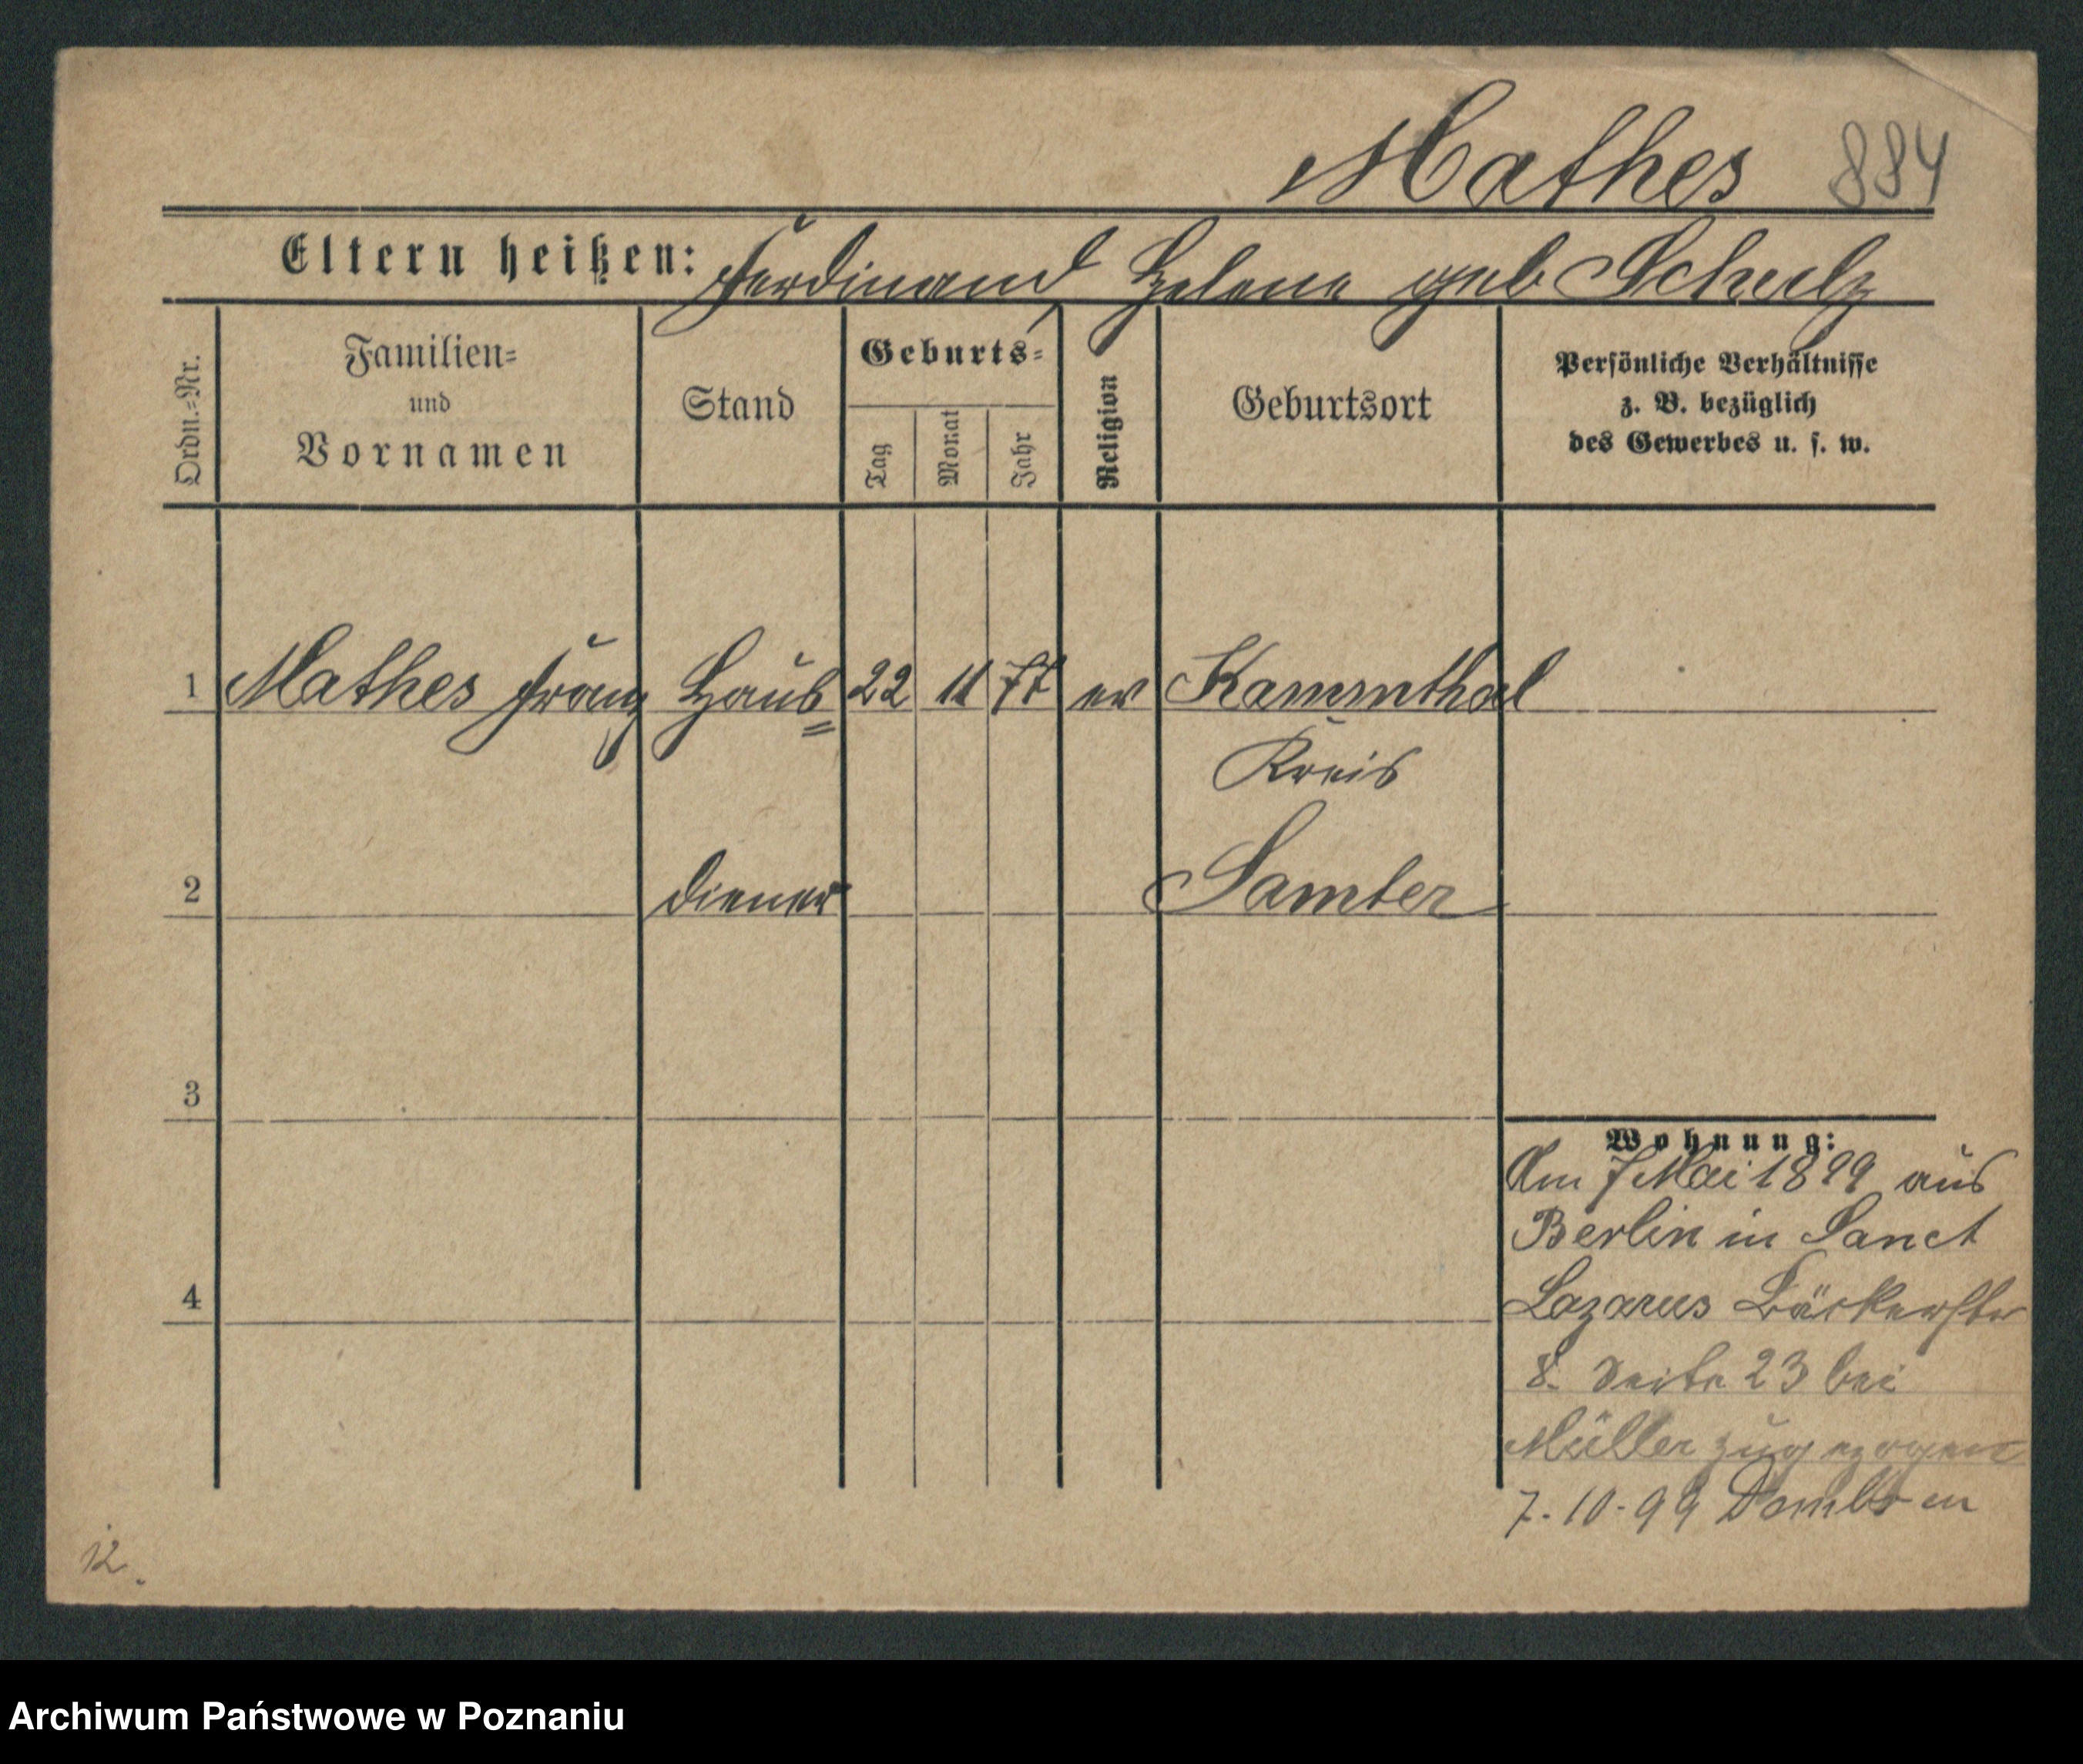 Mathes 884
Eltern heißen: Ferdinand Helene geb Schulz
Ordn.=Nr.
Familien=
und
Vornamen
Stand
Geburts=
Tag
Monat
Jahr
Religion
Geburtsort
Persönliche Verhältnisse
z. B. bezüglich
des Gewerbes u. s. w.
1 Mathes Franz Haus= 22 11 77 ev Kammthal
Kreis
2 diener Samter
3
Wohnung:
Am 7 Mai 1899 aus
Berlin in Sanct
4 Lazarus Bäckerstr
8. Seite 23 bei
Müller zugezogen
7.10.99 Dombr
12.
Archiwum Państwowe w Poznaniu